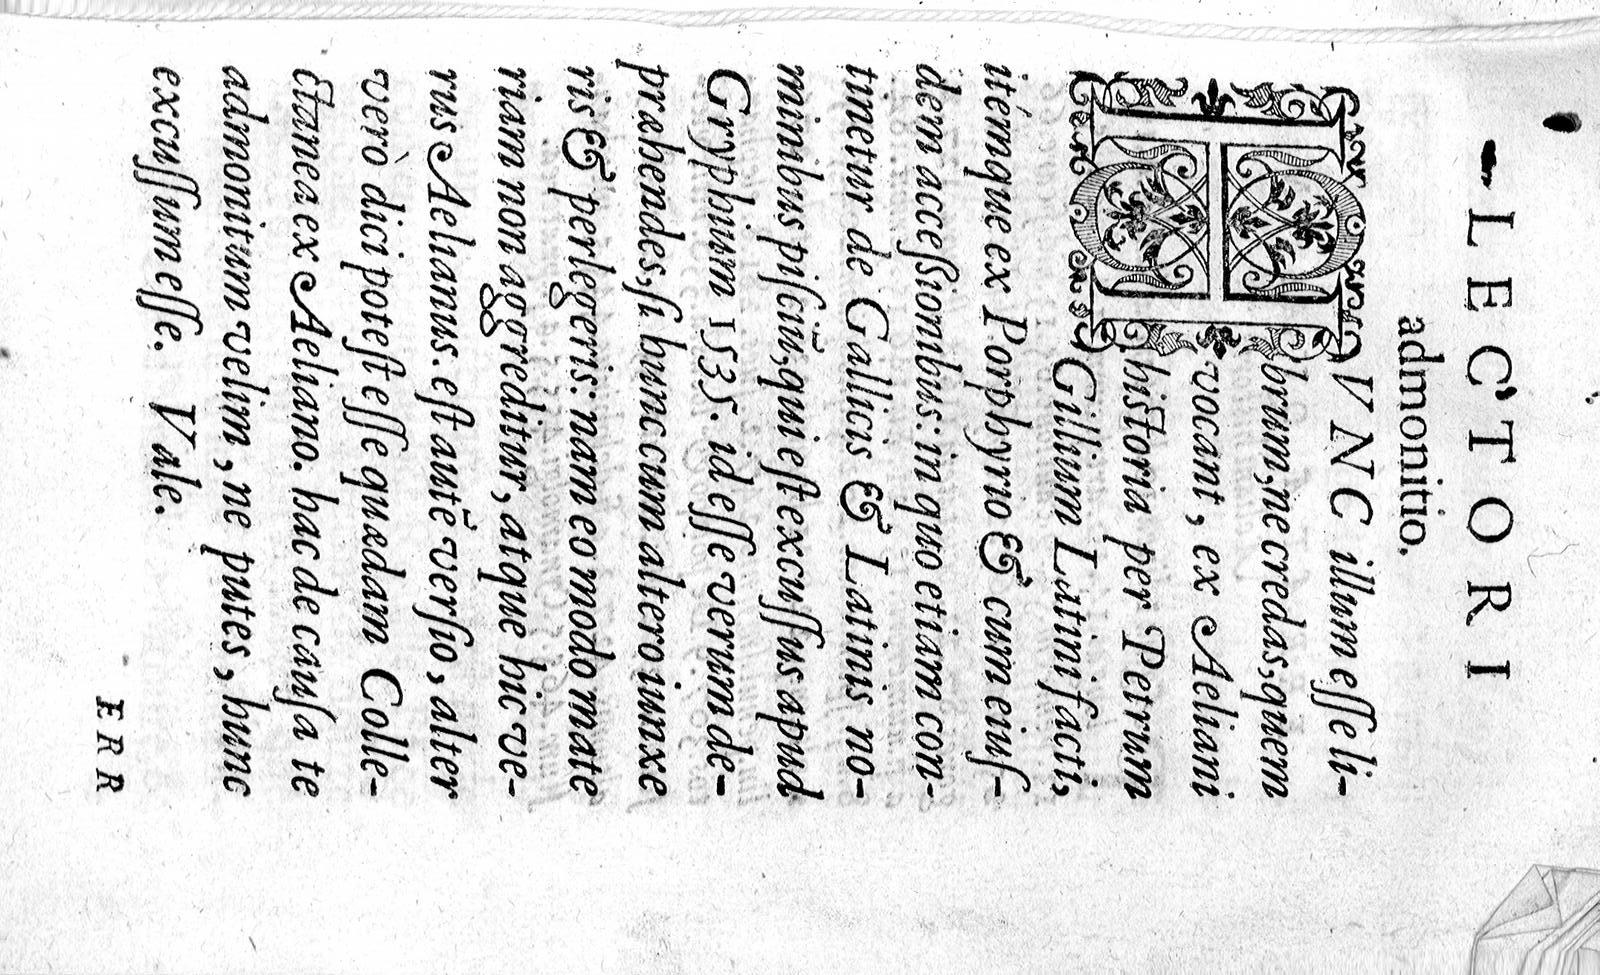 LECTORI
admonitio.
HVNC illum eſſe li-
brum, ne credas, quem
vocant, ex Aeliani
hiſtoria per Petrum
Gillium Latini facti,
itémque ex Porphyrio & cum eiuſ-
dem acceſsionibus: in quo etiam con-
tinetur de Gallicis & Latinis no-
minibus piſciũ, qui eſt excuſſus apud
Gryphium 1535. id eſſe verum de-
præhendes, ſi hunc cum altero iunxe
ris & perlegeris: nam eo modo mate
riam non aggreditur, atque hic ve-
rus Aelianus. eſt autẽ verſio, alter
verò dici poteſt eſſe quædam Colle-
ctanea ex Aeliano. hac de cauſa te
admonitum velim, ne putes, hunc
excuſſum eſſe. Vale.
ERR